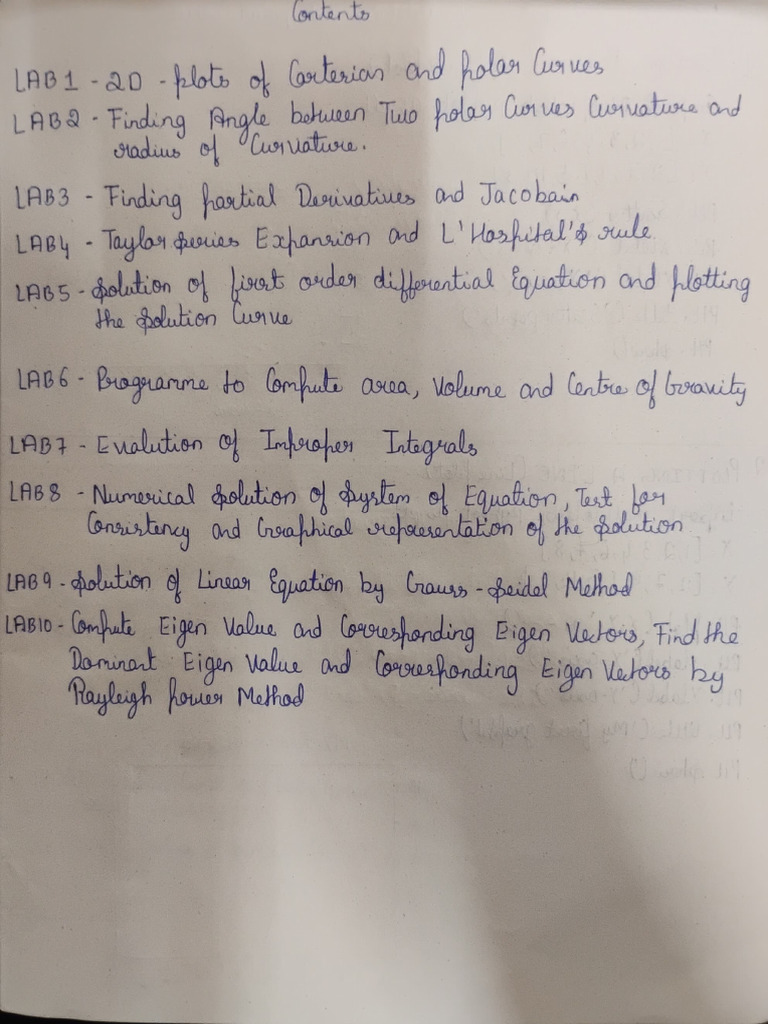 Contents
LAB 1 - 2D - plots of Carterian and polar Curves
LAB 2 - Finding Angle between Two polar Curves Curvature and
radius of Curvature.
LAB 3 - Finding partial Derivatives and Jacobain
LAB 4 - Taylor Series Expansion and L'Hospital's rule
LAB 5 - Solution of first order differential Equation and plotting
the Solution Curve
LAB 6 - Programme to Compute area, Volume and Centre of Gravity
LAB 7 - Evalution of Improper Integrals
LAB 8 - Numerical Solution of System of Equation, Test for
Consistency and Graphical representation of the Solution
LAB 9 - Solution of Linear Equation by Gauss - Seidel Method
LAB 10 - Compute Eigen Value and Corresponding Eigen Vectors, Find the
Dominant Eigen Value and Corresponding Eigen Vectors by
Rayleigh power Method